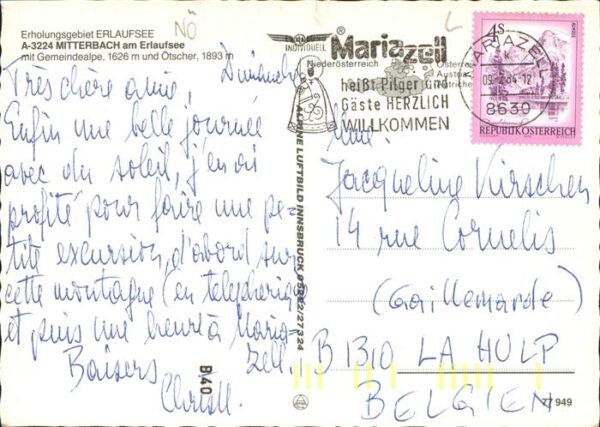 NÖ
L
Erholungsgebiet ERLAUFSEE
A-3224 MITTERBACH am Erlaufsee
mit Gemeindealpe, 1626 m und Ötscher, 1893 m
Niederösterreich
INDIVIDUELL
Mariazell
heißt Pilger und
Gäste HERZLICH
WILLKOMMEN
MARIAZELL
8630
4 S
REPUBLIK ÖSTERREICH
Très chère amie,
Enfin une belle journée
avec du soleil, j'en ai
profité pour faire une pe-
tite excursion, d'abord sur
cette montagne (en telepherique)
et puis une heure à Maria-
zell.
Baisers
ALPINE LUFTBILD INNSBRUCK
B40
Mme.
Jacqueline Kirschen
14 rue Cornelis
(Gaillemarde)
B 1310 LA HULP
BELGIEN
77 949